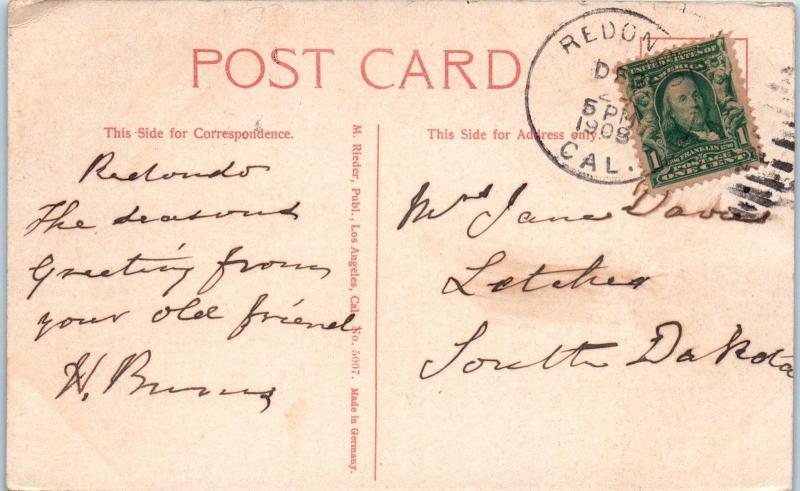 POST CARD
This Side for Correspondence.
Redondo
The seasons
Greeting from
your old friend
H. Burns
M. Rieder, Publ., Los Angeles, Cal. No. 5007. Made in Germany.
This Side for Address only.
REDON
DE
2
5 PM
1908
CAL.
UNITED STATES OF AMERICA
FRANKLIN
1 POSTAGE 1
ONE CENT
Mrs Jane Davis
Letcher
South Dakota